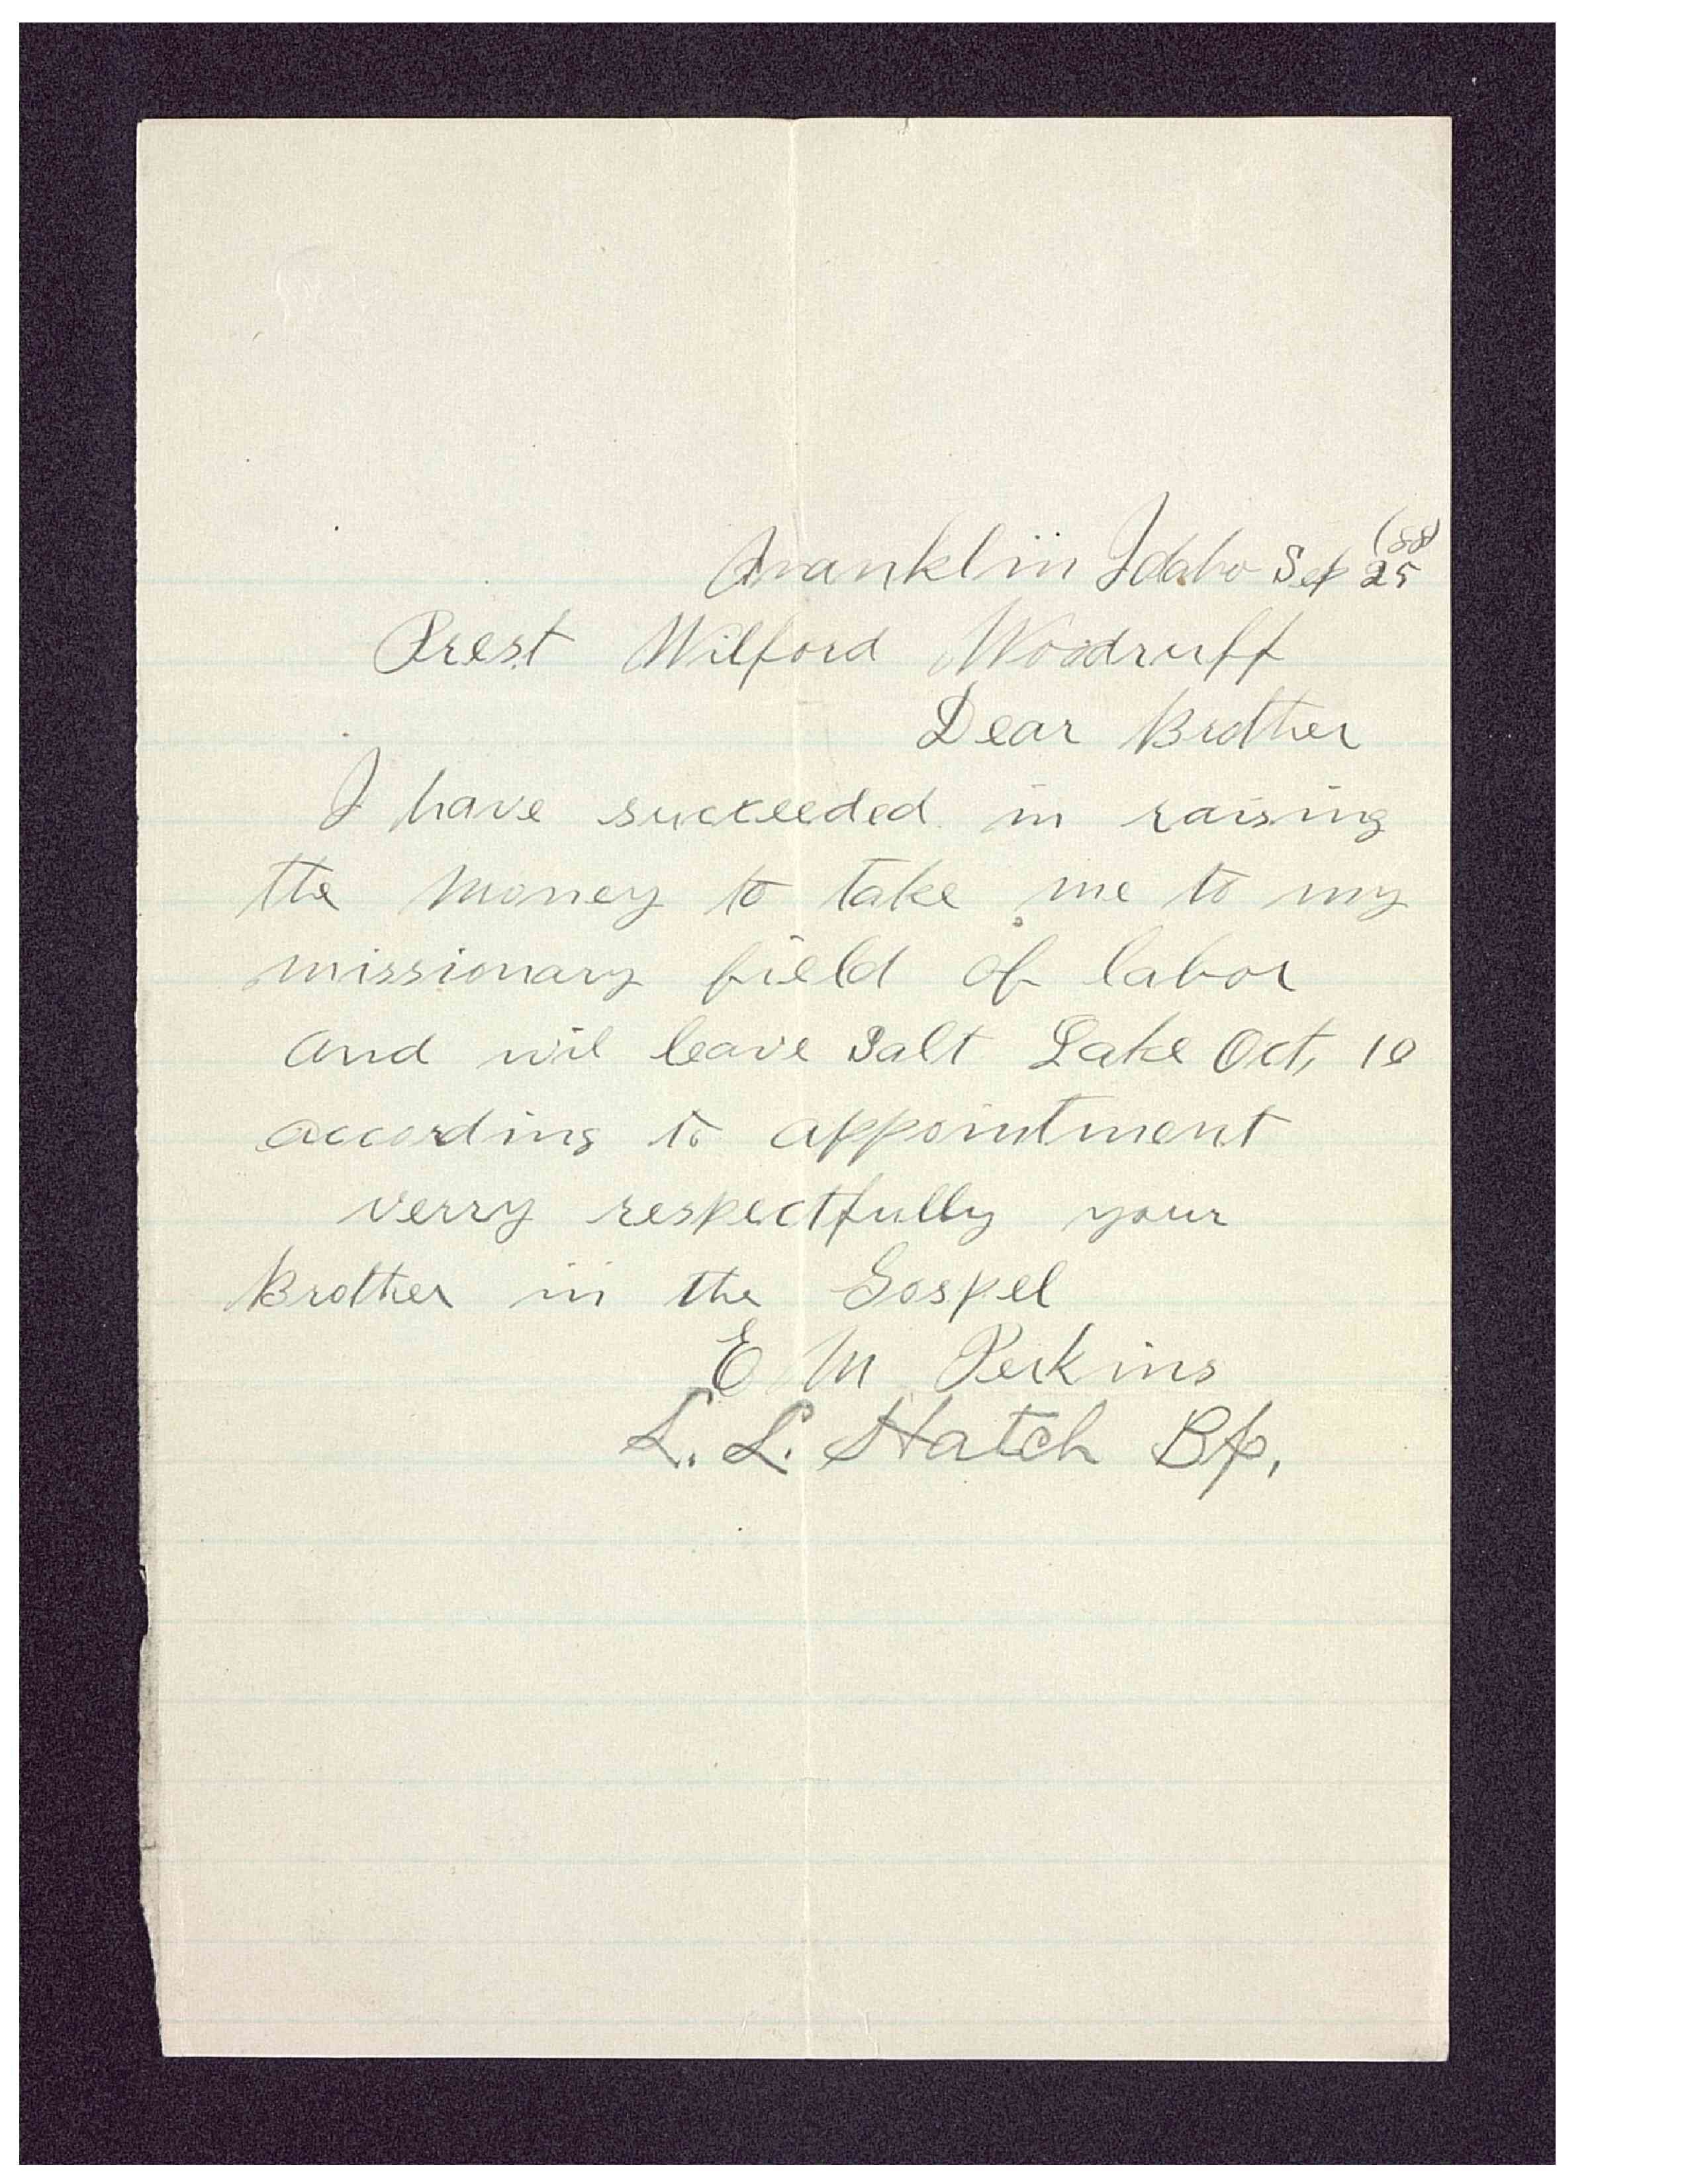 (88)
Franklin Idaho Sep 25
Prest Wilford Woodruff
Dear Brother
I have succeeded in raising
the money to take me to my
missionary field of labor
and wil leave Salt Lake Oct, 10
according to appointment
verry respectfully your
Brother in the Gospel
E M Perkins
L. L. Hatch Bp,